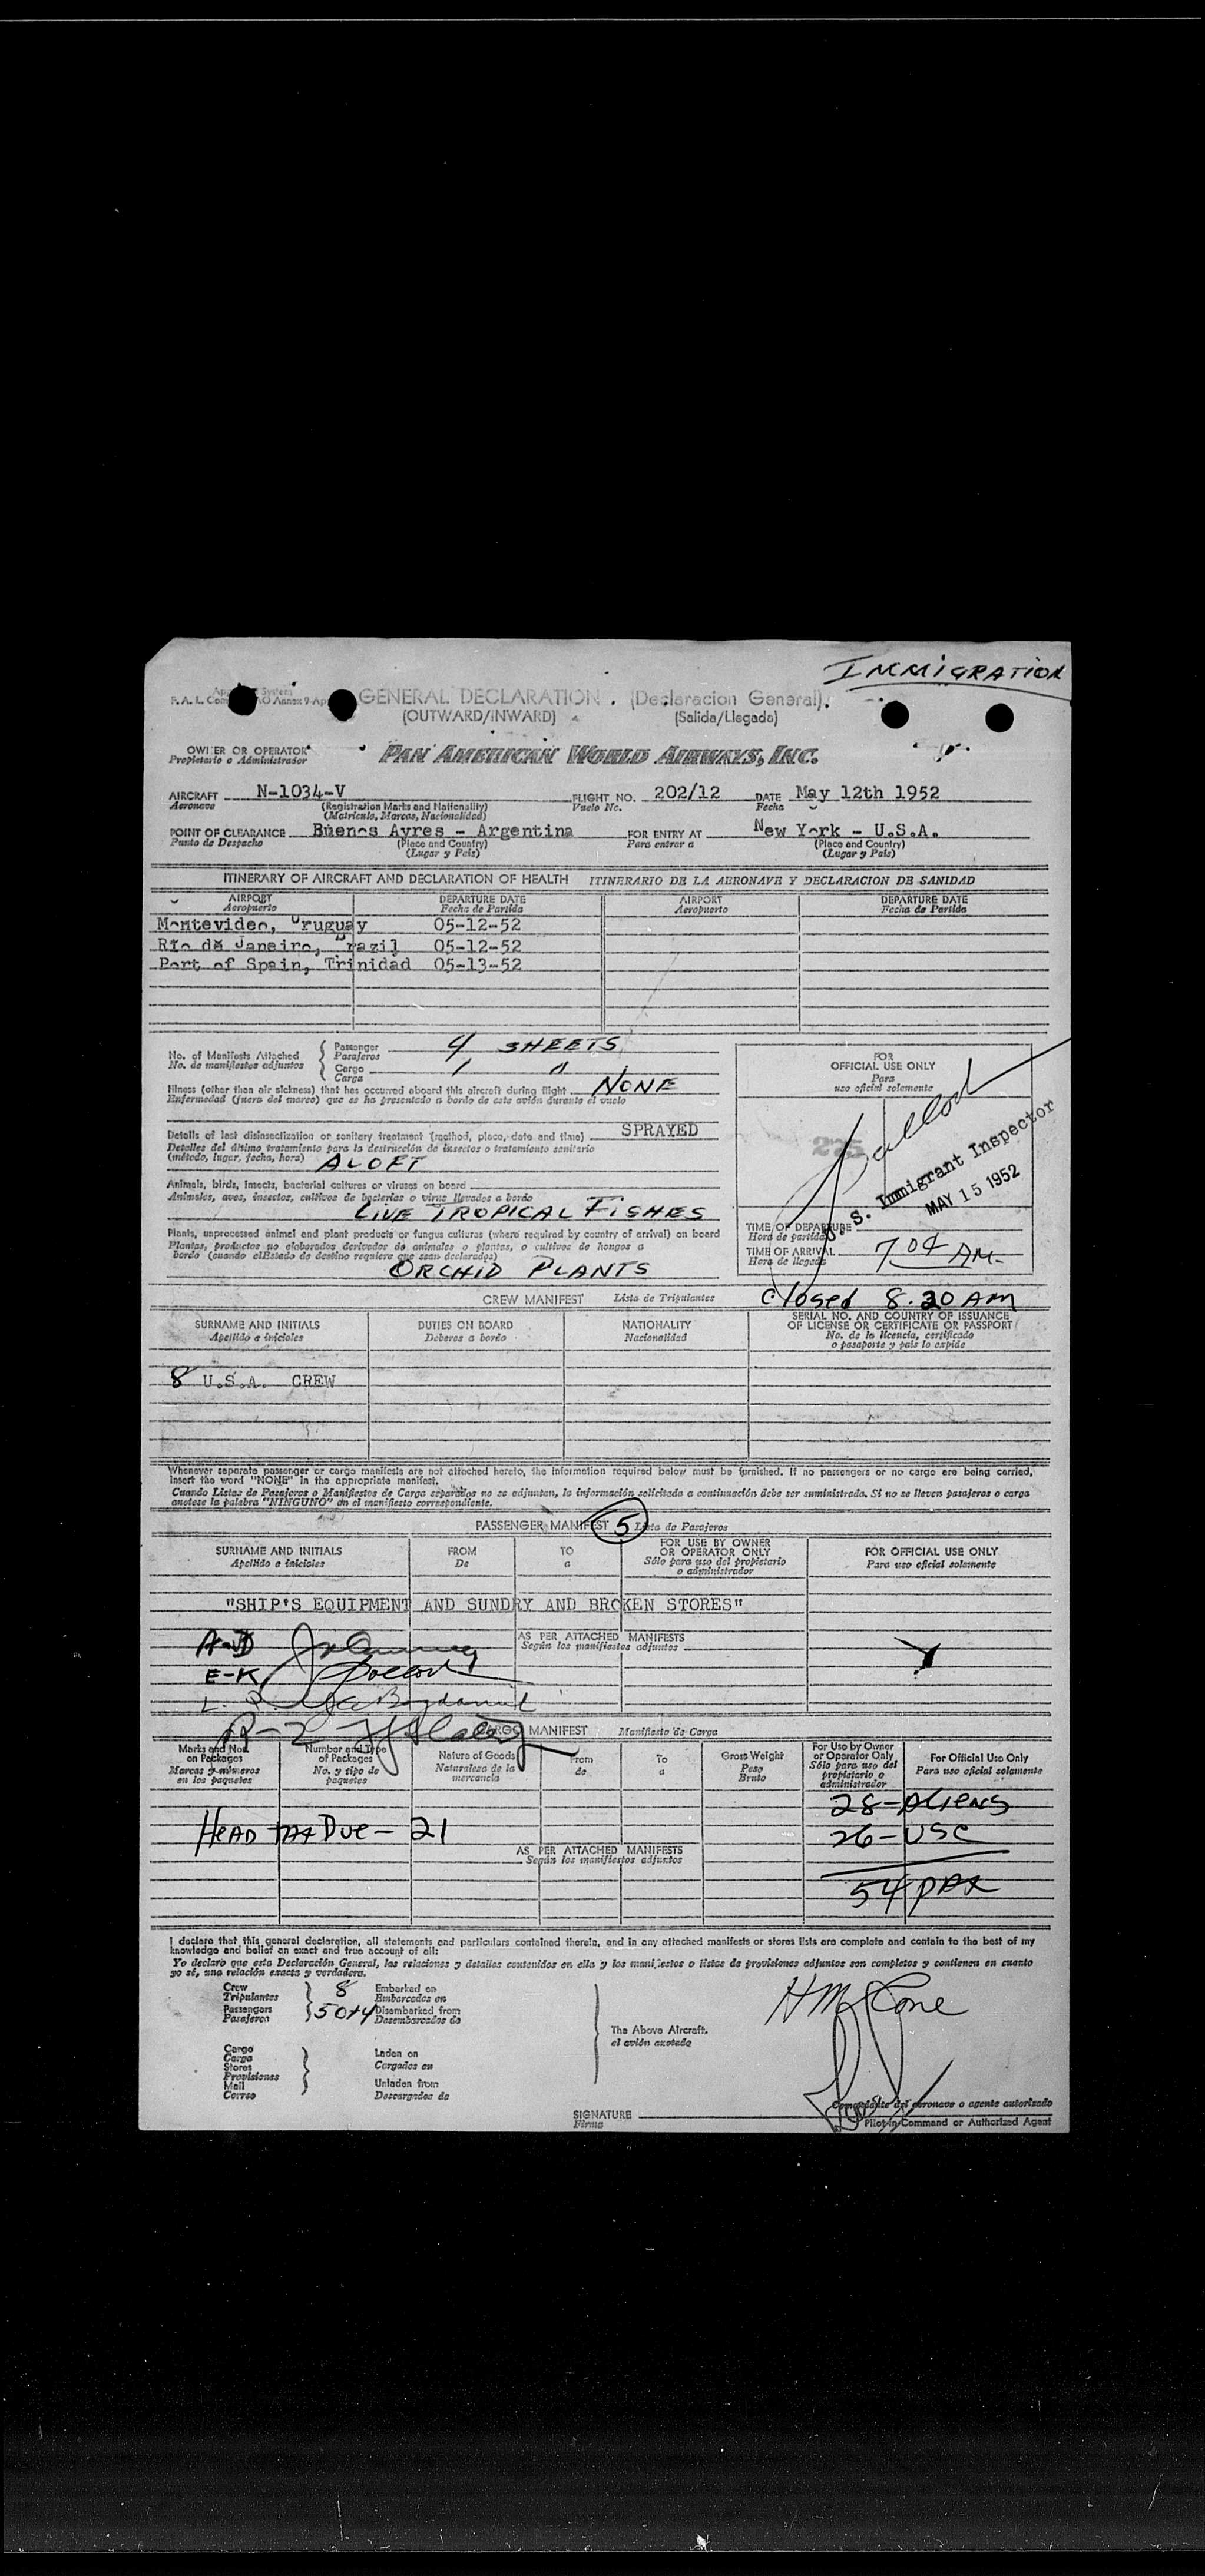 IMMIGRATION
GENERAL DECLARATION . (Declaracion General).
(OUTWARD/INWARD) (Salida/Llegada)
OWNER OR OPERATOR PAN AMERICAN WORLD AIRWAYS, INC.
Propietario o Administrador
AIRCRAFT N-1034-V FLIGHT NO. 202/12 DATE May 12th 1952
Aeronave (Registration Marks and Nationality) Vuelo No. Fecha
(Matricula, Marcas, Nacionalidad)
POINT OF CLEARANCE Buenos Ayres - Argentina FOR ENTRY AT New York - U.S.A.
Punto de Despacho (Place and Country) Para entrar a (Place and Country)
(Lugar y Pais) (Lugar y Pais)
ITINERARY OF AIRCRAFT AND DECLARATION OF HEALTH ITINERARIO DE LA AERONAVE Y DECLARACION DE SANIDAD
AIRPORT DEPARTURE DATE AIRPORT DEPARTURE DATE
Aeropuerto Fecha de Partida Aeropuerto Fecha de Partida
Montevideo, Uruguay 05-12-52
Rio de Janeiro, Brazil 05-12-52
Port of Spain, Trinidad 05-13-52
No. of Manifests Attached Passenger 4 SHEETS
No. de manifiestos adjuntos Pasajeros
Cargo 1 "
Carga
Illness (other than air sickness) that has occurred aboard this aircraft during flight NONE
Enfermedad (fuera del mareo) que se ha presentado a bordo de este avión durante el vuelo
Details of last disinsectization or sanitary treatment (method, place, date and time) SPRAYED
Detalles del último tratamiento para la destrucción de insectos o tratamiento sanitario
(método, lugar, fecha, hora) ALOFT
Animals, birds, insects, bacterial cultures or viruses on board
Animales, aves, insectos, cultivos de bacterias o virus llevados a bordo
LIVE TROPICAL FISHES
Plants, unprocessed animal and plant products or fungus cultures (where required by country of arrival) on board
Plantas, productos no elaborados derivados de animales o plantas, o cultivos de hongos a
bordo (cuando el Estado de destino requiere que sean declarados)
ORCHID PLANTS
FOR
OFFICIAL USE ONLY
Para
uso oficial solamente
225
U. S. Immigrant Inspector
MAY 15 1952
TIME OF DEPARTURE
Hora de partida
TIME OF ARRIVAL 7 04 AM.
Hora de llegada
Closed 8.30 AM
CREW MANIFEST Lista de Tripulantes
SURNAME AND INITIALS DUTIES ON BOARD NATIONALITY SERIAL NO. AND COUNTRY OF ISSUANCE
OF LICENSE OR CERTIFICATE OR PASSPORT
Apellido e iniciales Deberes a bordo Nacionalidad No. de la licencia, certificado
o pasaporte y pais lo expide
8 U.S.A. CREW
Whenever separate passenger or cargo manifests are not attached hereto, the information required below must be furnished. If no passengers or no cargo are being carried,
insert the word "NONE" in the appropriate manifest.
Cuando Listas de Pasajeros o Manifiestos de Carga separados no se adjunten, la información solicitada a continuación debe ser suministrada. Si no se lleven pasajeros o carga
anotese la palabra "NINGUNO" en el manifiesto correspondiente.
PASSENGER MANIFEST 5 Lista de Pasajeros
SURNAME AND INITIALS FROM TO FOR USE BY OWNER FOR OFFICIAL USE ONLY
OR OPERATOR ONLY
Apellido e iniciales De a Sólo para uso del propietario Para uso oficial solamente
o administrador
"SHIP'S EQUIPMENT AND SUNDRY AND BROKEN STORES"
A-D AS PER ATTACHED MANIFESTS
Según los manifiestos adjuntos
E-K
CARGO MANIFEST Manifiesto de Carga
Marks and Nos. Number and Type Nature of Goods From To Gross Weight For Use by Owner For Official Use Only
on Packages of Packages or Operator Only
Marcas y números No. y tipo de Naturaleza de la de a Peso Sólo para uso del Para uso oficial solamente
en los paquetes paquetes mercancía Bruto propietario o
administrador
28-Aliens
HEAD tax Due - 21 26-USC
AS PER ATTACHED MANIFESTS
Según los manifiestos adjuntos
54 PAX
I declare that this general declaration, all statements and particulars contained therein, and in any attached manifests or stores lists are complete and contain to the best of my
knowledge and belief an exact and true account of all:
Yo declaro que esta Declaración General, las relaciones y detalles contenidos en ella y los manifiestos o listas de provisiones adjuntos son completos y contienen en cuanto
yo sé, una relación exacta y verdadera.
Crew 8 Embarked on
Tripulantes Embarcados en
Passengers 50+4 Disembarked from
Pasajeros Desembarcados de
The Above Aircraft.
el avión anotado
Cargo Laden on
Carga Cargados en
Stores
Provisiones
Mail Unladen from
Correo Descargados de
Comandante del aeronave o agente autorizado
SIGNATURE Pilot-in-Command or Authorized Agent
Firma